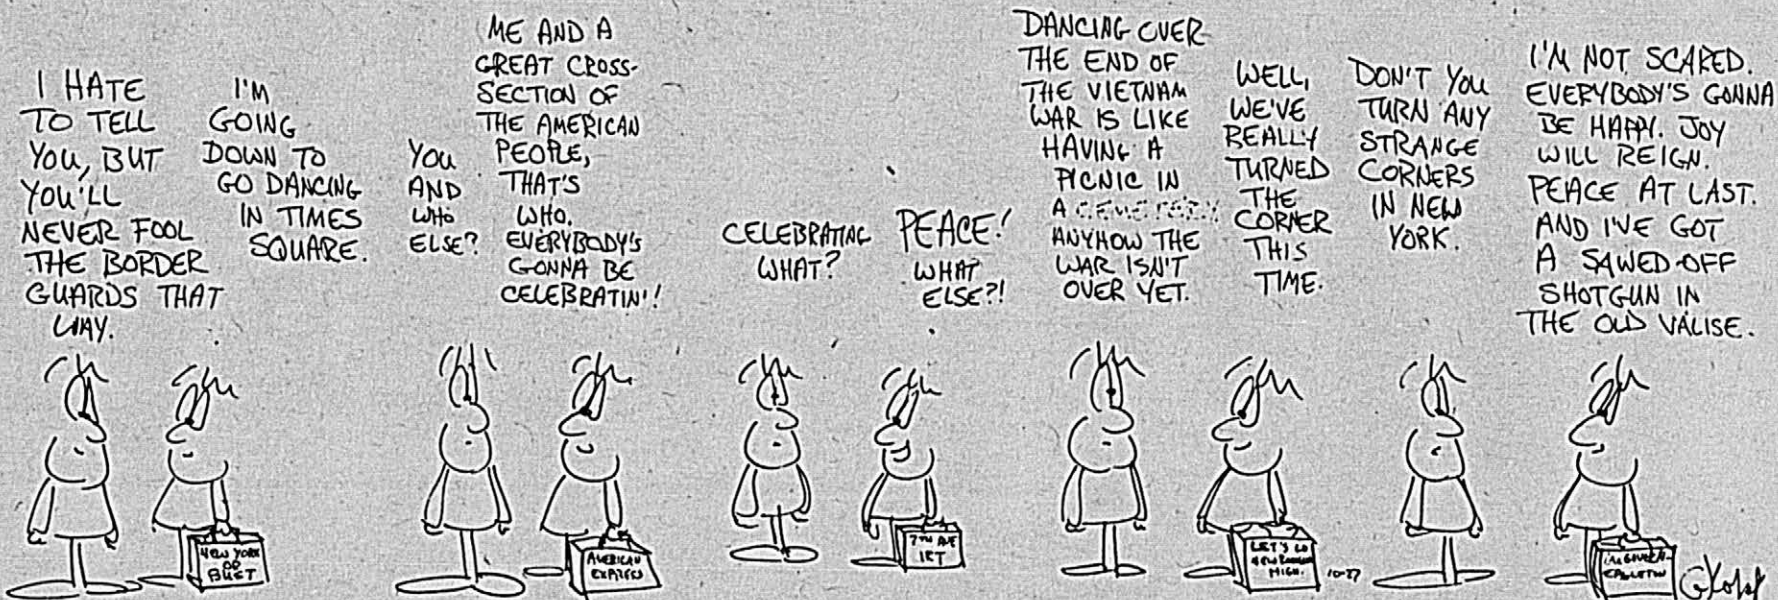 I HATE
TO TELL
YOU, BUT
YOU'LL
NEVER FOOL
THE BORDER
GUARDS THAT
WAY.
I'M
GOING
DOWN TO
GO DANCING
IN TIMES
SQUARE.
NEW YORK
OR
BUST
YOU
AND
WHO
ELSE?
ME AND A
GREAT CROSS-
SECTION OF
THE AMERICAN
PEOPLE,
THAT'S
WHO.
EVERYBODY'S
GONNA BE
CELEBRATIN'!
AMERICAN
EXPRESS
CELEBRATING
WHAT?
PEACE!
WHAT
ELSE?!
7TH AVE
IRT
DANCING OVER
THE END OF
THE VIETNAM
WAR IS LIKE
HAVING A
PICNIC IN
A CEMETERY.
ANYHOW THE
WAR ISN'T
OVER YET.
WELL,
WE'VE
REALLY
TURNED
THE
CORNER
THIS
TIME.
LET'S GO
HIGH.
10-27
DON'T YOU
TURN ANY
STRANGE
CORNERS
IN NEW
YORK.
I'M NOT SCARED.
EVERYBODY'S GONNA
BE HAPPY. JOY
WILL REIGN.
PEACE AT LAST.
AND I'VE GOT
A SAWED-OFF
SHOTGUN IN
THE OLD VALISE.